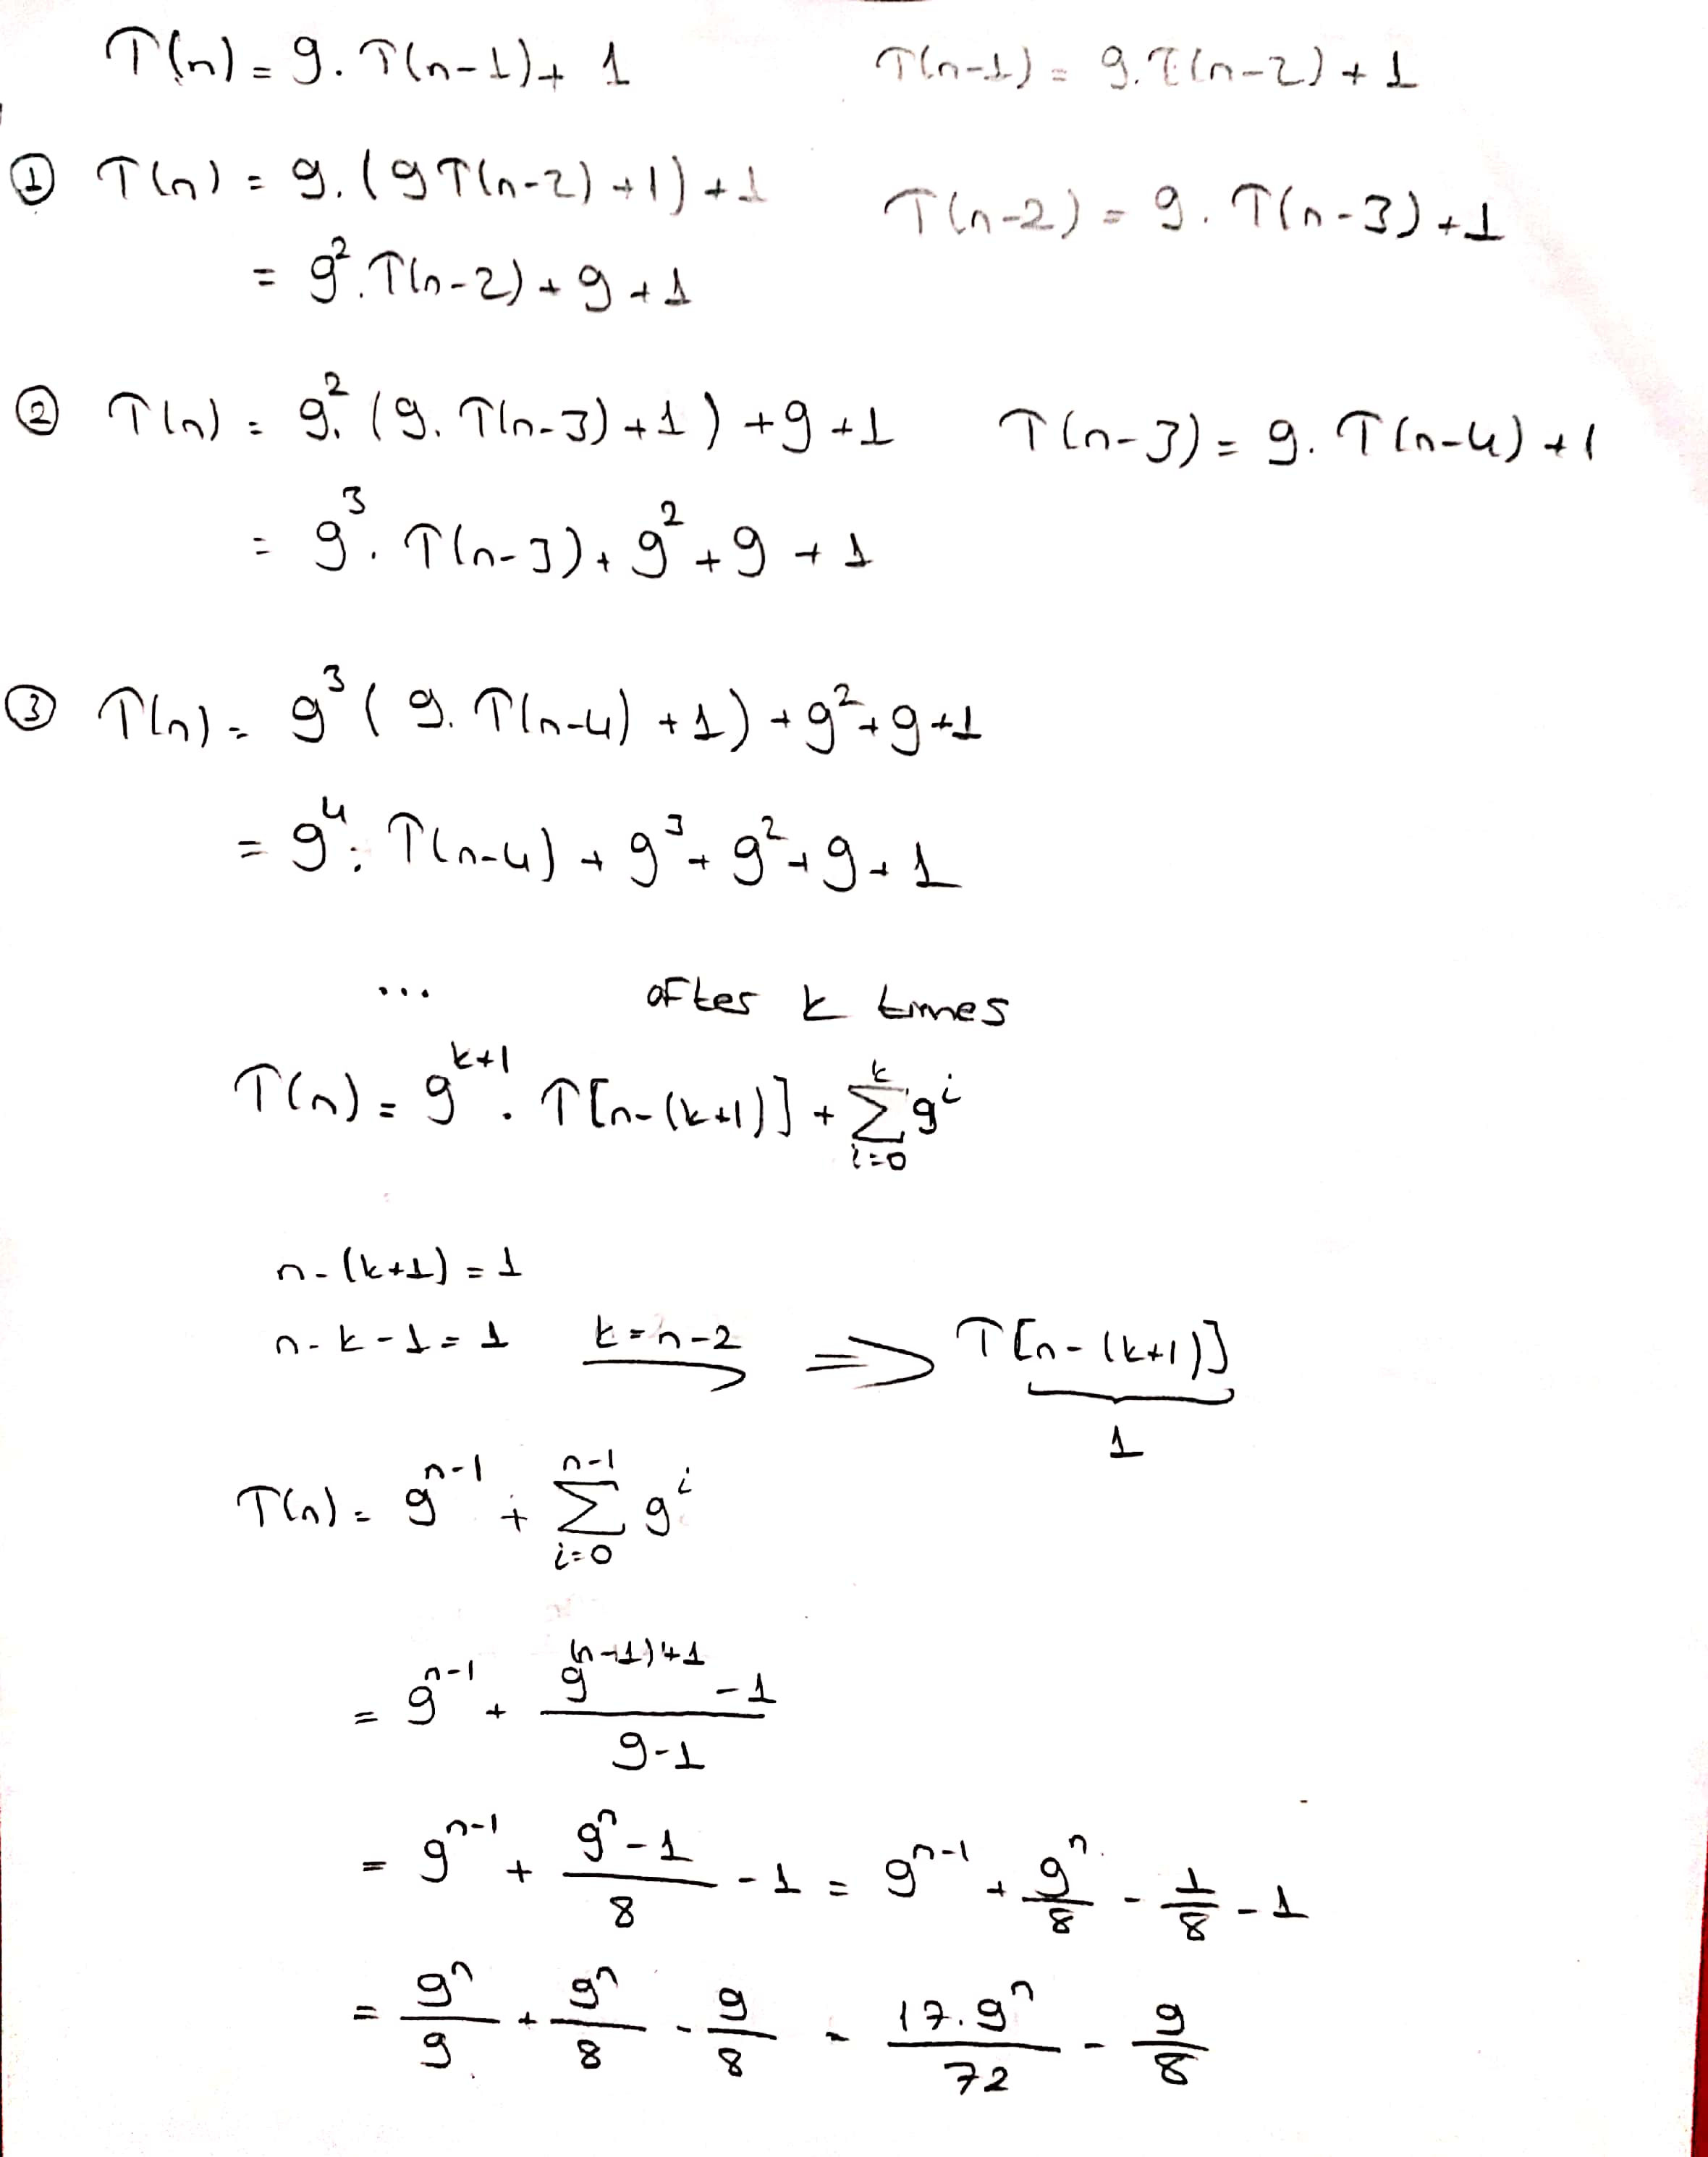 T(n) = 9. T(n-1) + 1
T(n-1) = 9. T(n-2) + 1
① T(n) = 9. (9T(n-2) + 1) + 1
T(n-2) = 9. T(n-3) + 1
= 9². T(n-2) + 9 + 1
② T(n) = 9². (9. T(n-3) + 1) + 9 + 1
T(n-3) = 9. T(n-4) + 1
= 9³. T(n-3) + 9² + 9 + 1
③ T(n) = 9³ (9. T(n-4) + 1) + 9² + 9 + 1
= 9⁴. T(n-4) + 9³ + 9² + 9 + 1
... after k times
T(n) = 9^(k+1). T[n-(k+1)] + Σ_{i=0}^{k} 9^i
n-(k+1) = 1
n-k-1 = 1 k = n-2 ⟹ T[n-(k+1)]
1
T(n) = 9^(n-1) + Σ_{i=0}^{n-1} 9^i
= 9^(n-1) + (9^((n-1)+1) - 1)/(9-1)
= 9^(n-1) + (9^n - 1)/8 - 1 = 9^(n-1) + 9^n/8 - 1/8 - 1
= 9^n/9 + 9^n/8 - 9/8 = 17.9^n/72 - 9/8